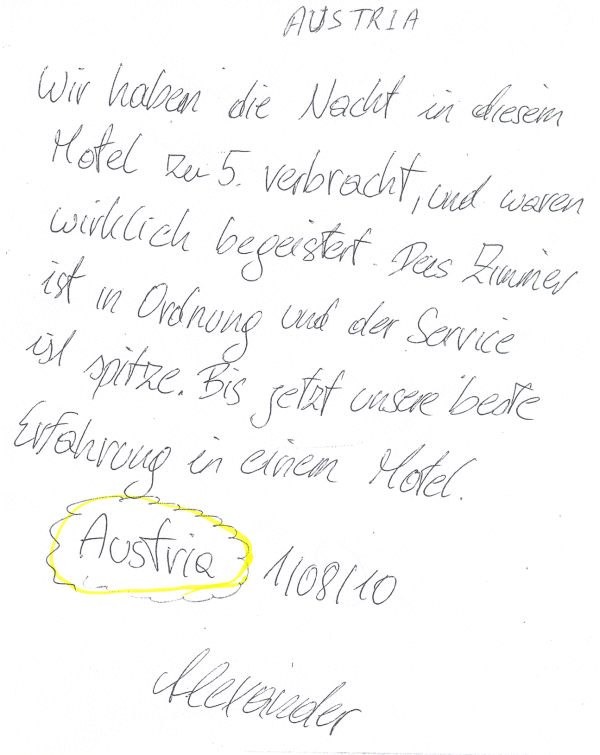 AUSTRIA
Wir haben die Nacht in diesem
Motel zu 5. verbracht, und waren
wirklich begeistert. Das Zimmer
ist in Ordnung und der Service
ist spitze. Bis jetzt unsere beste
Erfahrung in einem Motel.
Austria 1/08/10
Alexander